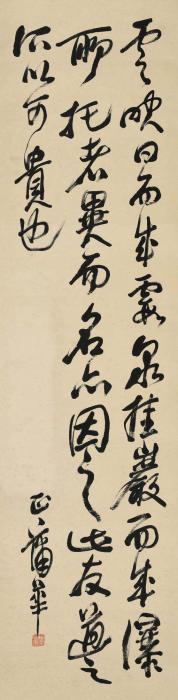 雲映日而成霞泉挂巖而成瀑
所托者異而名亦因之此友道之
所以可貴也
蒲華